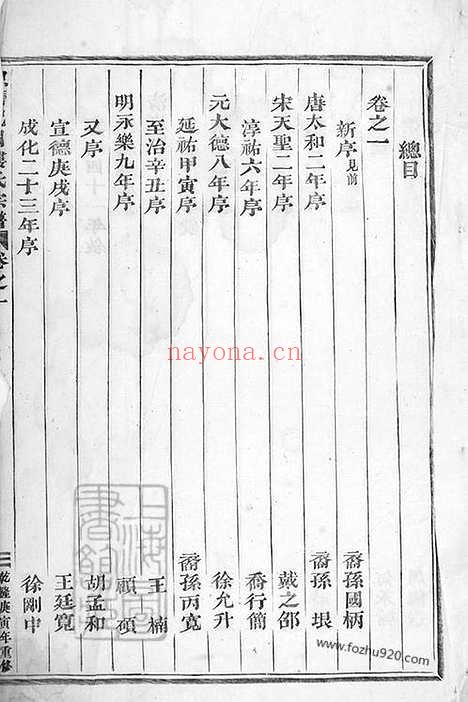 總目
卷之一
新序見前 裔孫國柄
唐太和二年序 裔孫垠
宋天聖二年序 戴之邵
淳祐六年序 喬行簡
元大德八年序 徐允升
延祐甲寅序 裔孫丙寬
至治辛丑序 王楠
明永樂九年序 顧碩
又序 胡孟和
宣德庚戌序 王廷寬
成化二十三年序 徐剛中
氏宗譜 卷之一
乾隆庚寅年重修
上海圖書館藏
nayona.cn
www.fozhu920.com